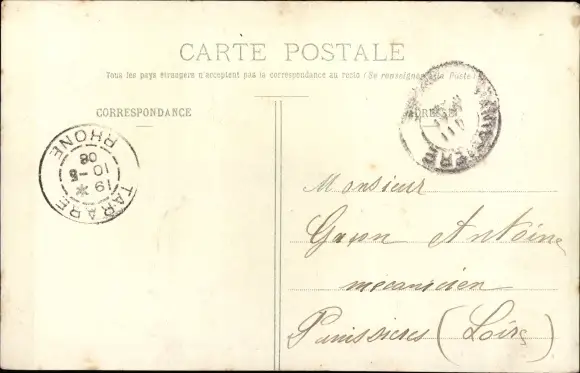 CARTE POSTALE
Tous les pays étrangers n'acceptent pas la correspondance au recto (Se renseigner à la Poste)
CORRESPONDANCE
TARARE
RHONE
19 *
10 - 5
08
Monsieur
Antoine
mecanicien
Panissieres (Loire)